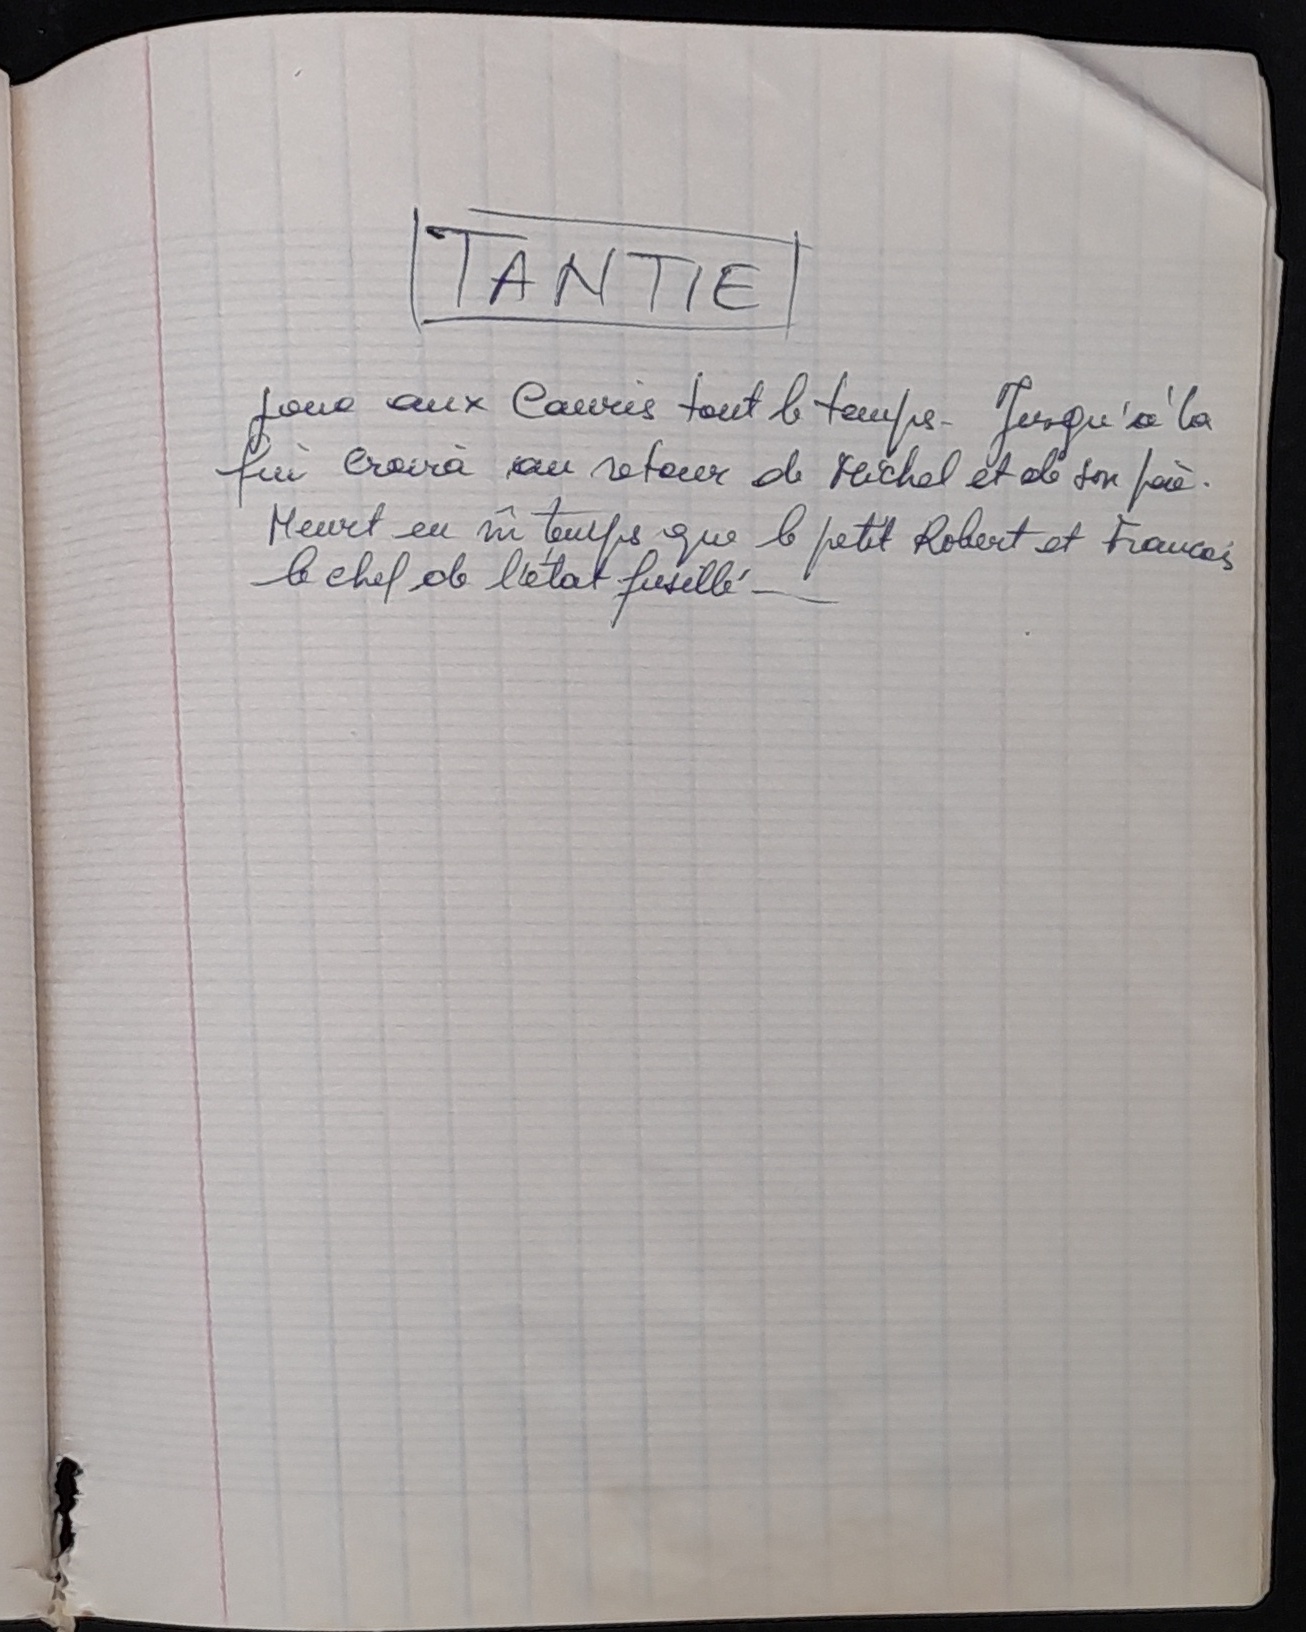 TANTIE
joue aux Cauris tout le temps. Jusqu'à la
fin croira au retour de Michel et de son père.
Meurt en m̂ temps que le petit Robert et Francois
le chef de l'état fusillé.